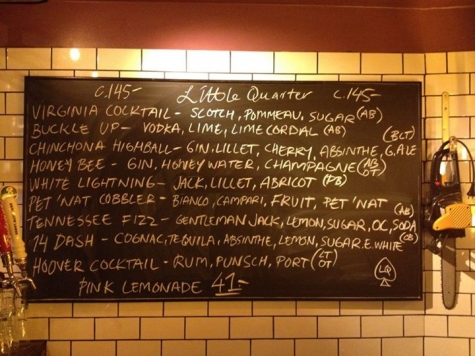 C.145- Little Quarter C.145-
VIRGINIA COCKTAIL - SCOTCH, POMMEAU, SUGAR (AB)
BUCKLE UP - VODKA, LIME, LIME CORDIAL (AB)
CHINCHONA HIGHBALL - GIN, LILLET, CHERRY, ABSINTHE, G.ALE (BLT)
HONEY BEE - GIN, HONEY WATER, CHAMPAGNE (AB OT)
WHITE LIGHTNING - JACK, LILLET, ABRICOT (PB)
PET 'NAT COBBLER - BIANCO, CAMPARI, FRUIT, PET 'NAT (AB)
TENNESSEE FIZZ - GENTLEMAN JACK, LEMON, SUGAR, OC, SODA
74 DASH - COGNAC, TEQUILA, ABSINTHE, LEMON, SUGAR. E. WHITE
HOOVER COCKTAIL - RUM, PUNSCH, PORT (LT OT)
PINK LEMONADE 41-
LQ